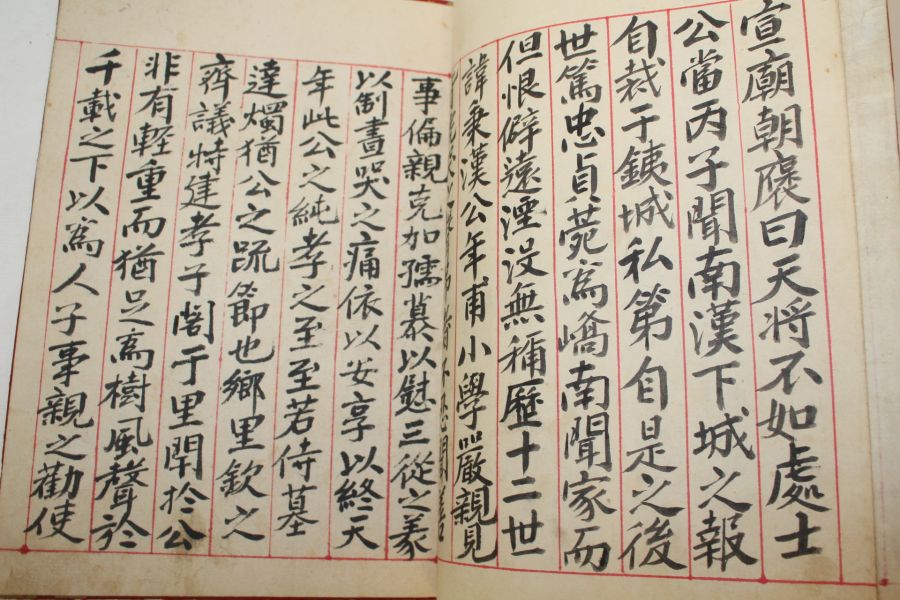 宣廟朝褒曰天將不如處士
公當丙子聞南漢下城之報
自裁于銕城私第自是之後
世篤忠貞菀為嶠南聞家而
但恨僻遠湮沒無稱歷十二世
諱秉漢公年甫小學嚴親見
事倫親克加孺慕以慰三從之義
以制晝哭之痛依以安享以終天
年此公之純孝之至至若侍墓
達燭猶公之疏節也鄉里欽之
齊議特建孝子閣于里閈於公
非有輕重而猶足為樹風聲於
千載之下以為人子事親之勸使